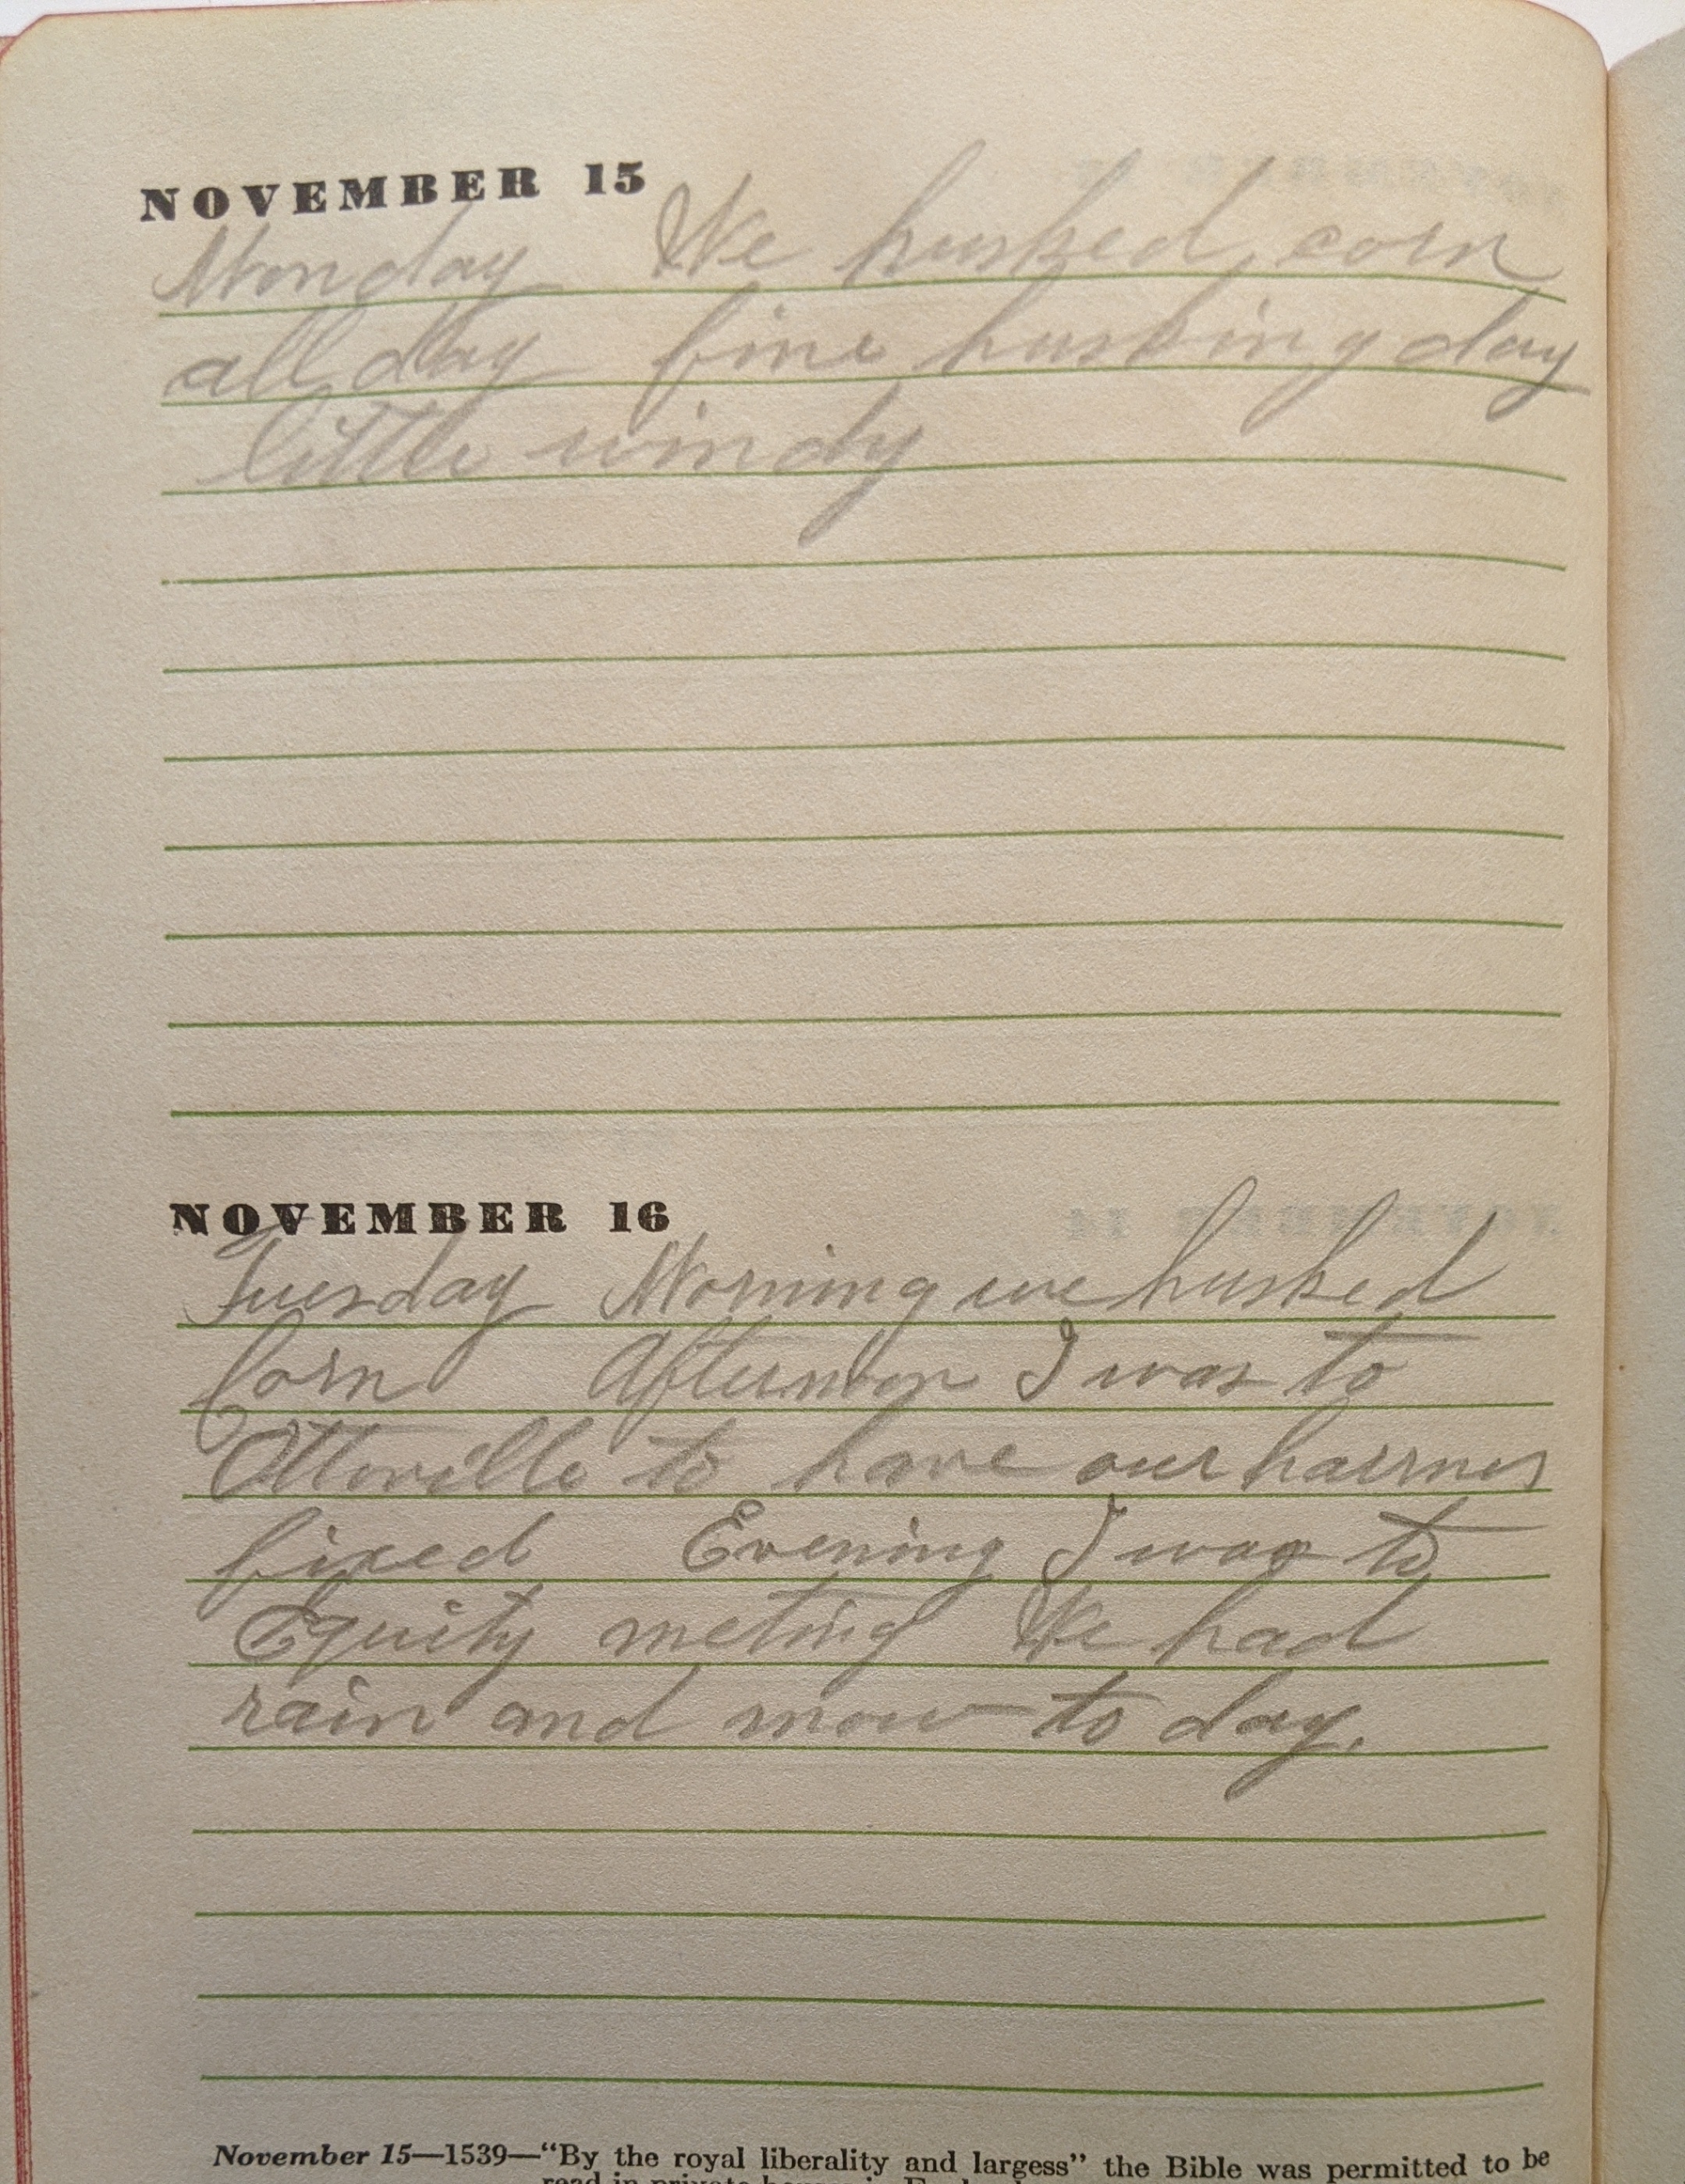 NOVEMBER 15
Monday We husked corn
all day fine husking day
little windy
NOVEMBER 16
Tuesday Morning we husked
Corn Afternoon I was to
Ottoville to have our harrnes
fixed Evening I was to
Equity meting We had
rain and snow to day.
November 15—1539—“By the royal liberality and largess” the Bible was permitted to be
read in private